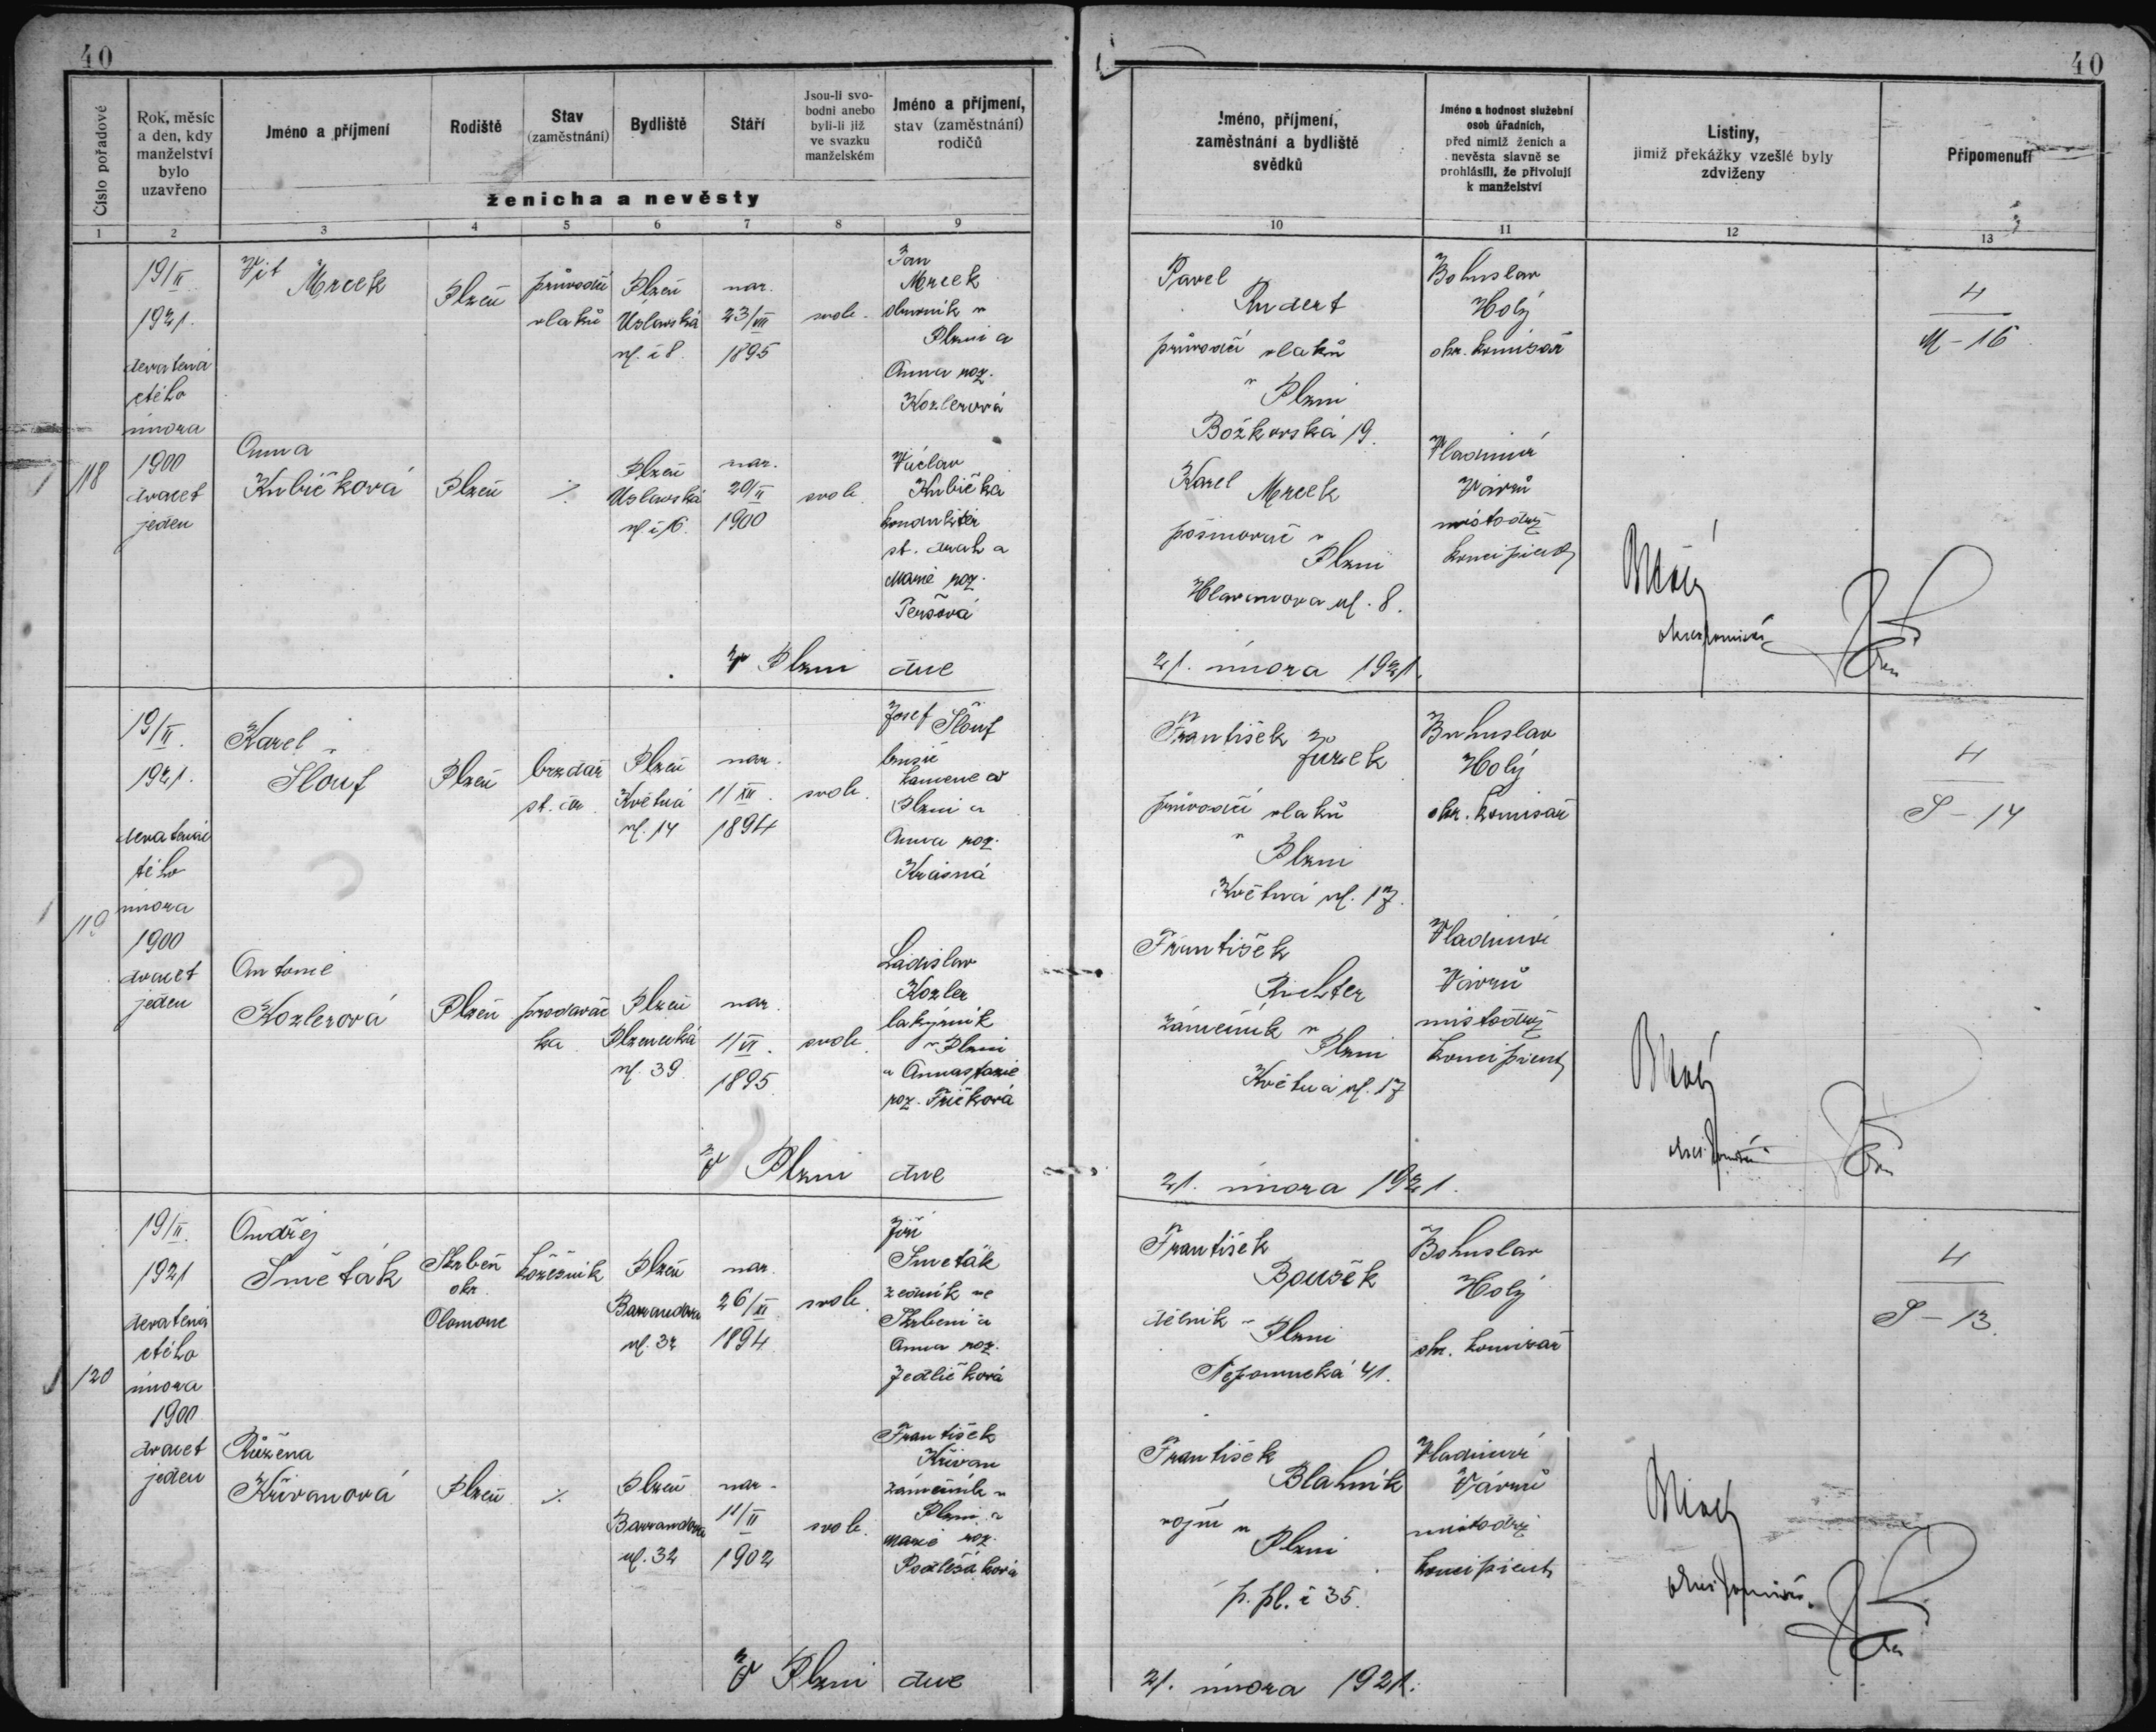 40
40
Číslo pořadové
Rok, měsíc
a den, kdy
manželství
bylo
uzavřeno
Jméno a příjmení
Rodiště
Stav
(zaměstnání)
Bydliště
Stáří
Jsou-li svo-
bodni anebo
byli-li již
ve svazku
manželském
Jméno a příjmení,
stav (zaměstnání)
rodičů
ženicha a nevěsty
Jméno, příjmení,
zaměstnání a bydliště
svědků
Jméno a hodnost služební
osob úřadních,
před nimiž ženich a
nevěsta slavně se
prohlásili, že přivolují
k manželství
Listiny,
jimiž překážky vzešlé byly
zdviženy
Připomenutí
1 2 3 4 5 6 7 8 9
10 11 12 13
118
19/II.
1921.
devatená
ctého
února
1900
dvacet
jeden
Vít
Mrcek
Plzeň
průvodčí
vlaků
Plzeň
Úslavská
ul. č 8.
nar.
23/VII
1895
svob.
Jan
Mrcek
obuvník v
Plzni a
Anna roz.
Kozlerová
Anna
Kubičková
Plzeň
%
Plzeň
Úslavská
ul. č 16.
nar.
20/II
1900
svob.
Václav
Kubička
konduktér
st. drah a
Marie roz.
Peršová
V Plzni dne
Pavel
Rudert
průvodčí vlaků
v Plzni
Božkovská 19.
Karel
Mrcek
v
Plzni
Hlavanova ul. 8.
21. února 1921.
Bohuslav
Holý
okr. komisař
Vladimír
Vávrů
místodrž
koncipient
4
M – 16
119
19/II.
1921.
devatenác
tého
února
1900
dvacet
jeden
Karel
Šlouf
Plzeň
brzdař
st. dr.
Plzeň
Květná
ul. 14
nar.
11/XII.
1894
svob.
Josef Šlouf
brusič
kamene v
Plzni a
Anna roz.
Krásná
Antonie
Kozlerová
Plzeň
prodavač
ka
Plzeň
Plzenecká
ul. 39
nar.
1/VI.
1895.
svob.
Ladislav
Kozler
lakýrník
v Plzni
a Annastazie
roz. Fričková
V Plzni dne
František
Jůzek
průvodčí vlaků
v Plzni
Květná ul. 17.
František
Richter
zámečník v
Plzni
Květná ul. 17
21. února 1921.
Bohuslav
Holý
okr. komisař
Vladimír
Vávrů
místodrž
koncipient
4
S – 14
120
19/II.
1921
devatená
ctého
února
1900
dvacet
jeden
Ondřej
Smeták
Skrbeň
okr.
Olomouc
kožešník
Plzeň
Barrandova
ul. 32
nar.
26/XI
1894
svob.
Jiří
Smeták
zedník ve
Skrbeni a
Anna roz.
Jedličková
Růžena
Křivanová
Plzeň
%
Plzeň
Barrandova
ul. 32
nar.
11/II
1902
svob.
František
Křivan
zámečník v
Plzni a
Marie roz.
Podlešáková
V Plzni dne
František
Boušek
dělník v
Plzni
Nepomucká 41.
František
Blahník
vojín v
Plzni
p. pl. č 35.
21. února 1921.
Bohuslav
Holý
okr. komisař
Vladimír
Vávrů
místodrž
koncipient
4
S – 13.